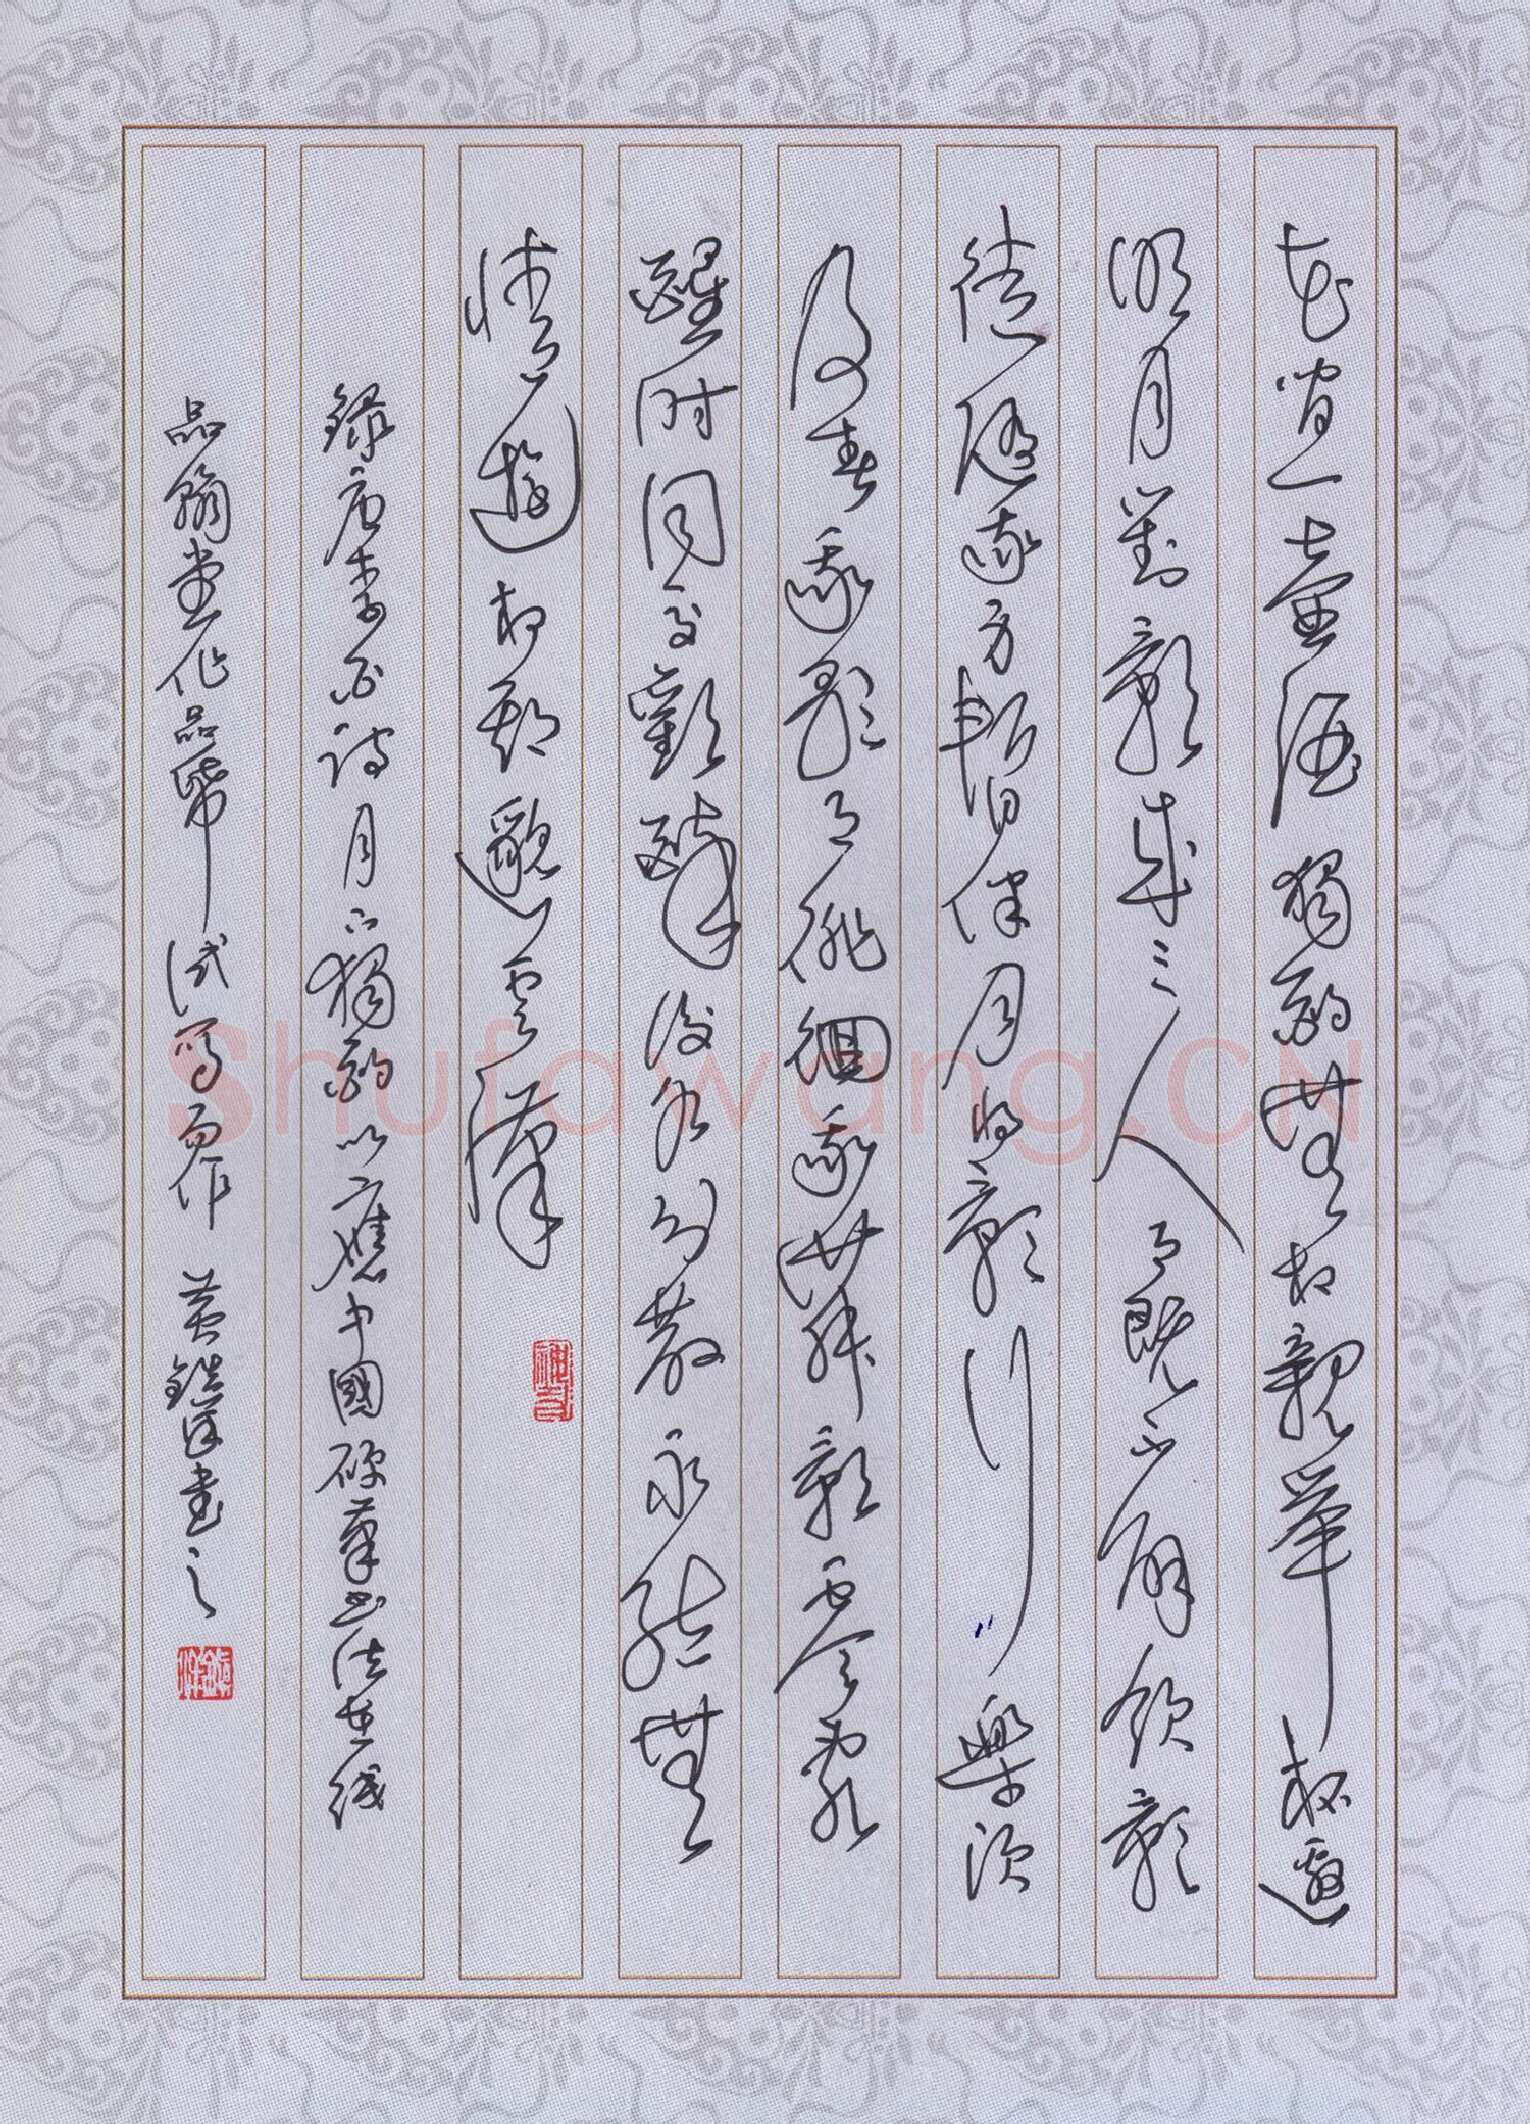 花間一壺酒獨酌無相親舉杯邀
明月對影成三人月既不解飲影
徒隨我身暫伴月將影行樂須
及春我歌月徘徊我舞影零亂
醒時同交歡醉後各分散永結無
情遊相期邈雲漢
錄唐李白詩月下獨酌以應中國硬筆書法在线
品翰堂作品帋試寫 黃書之
Shufawang.CN